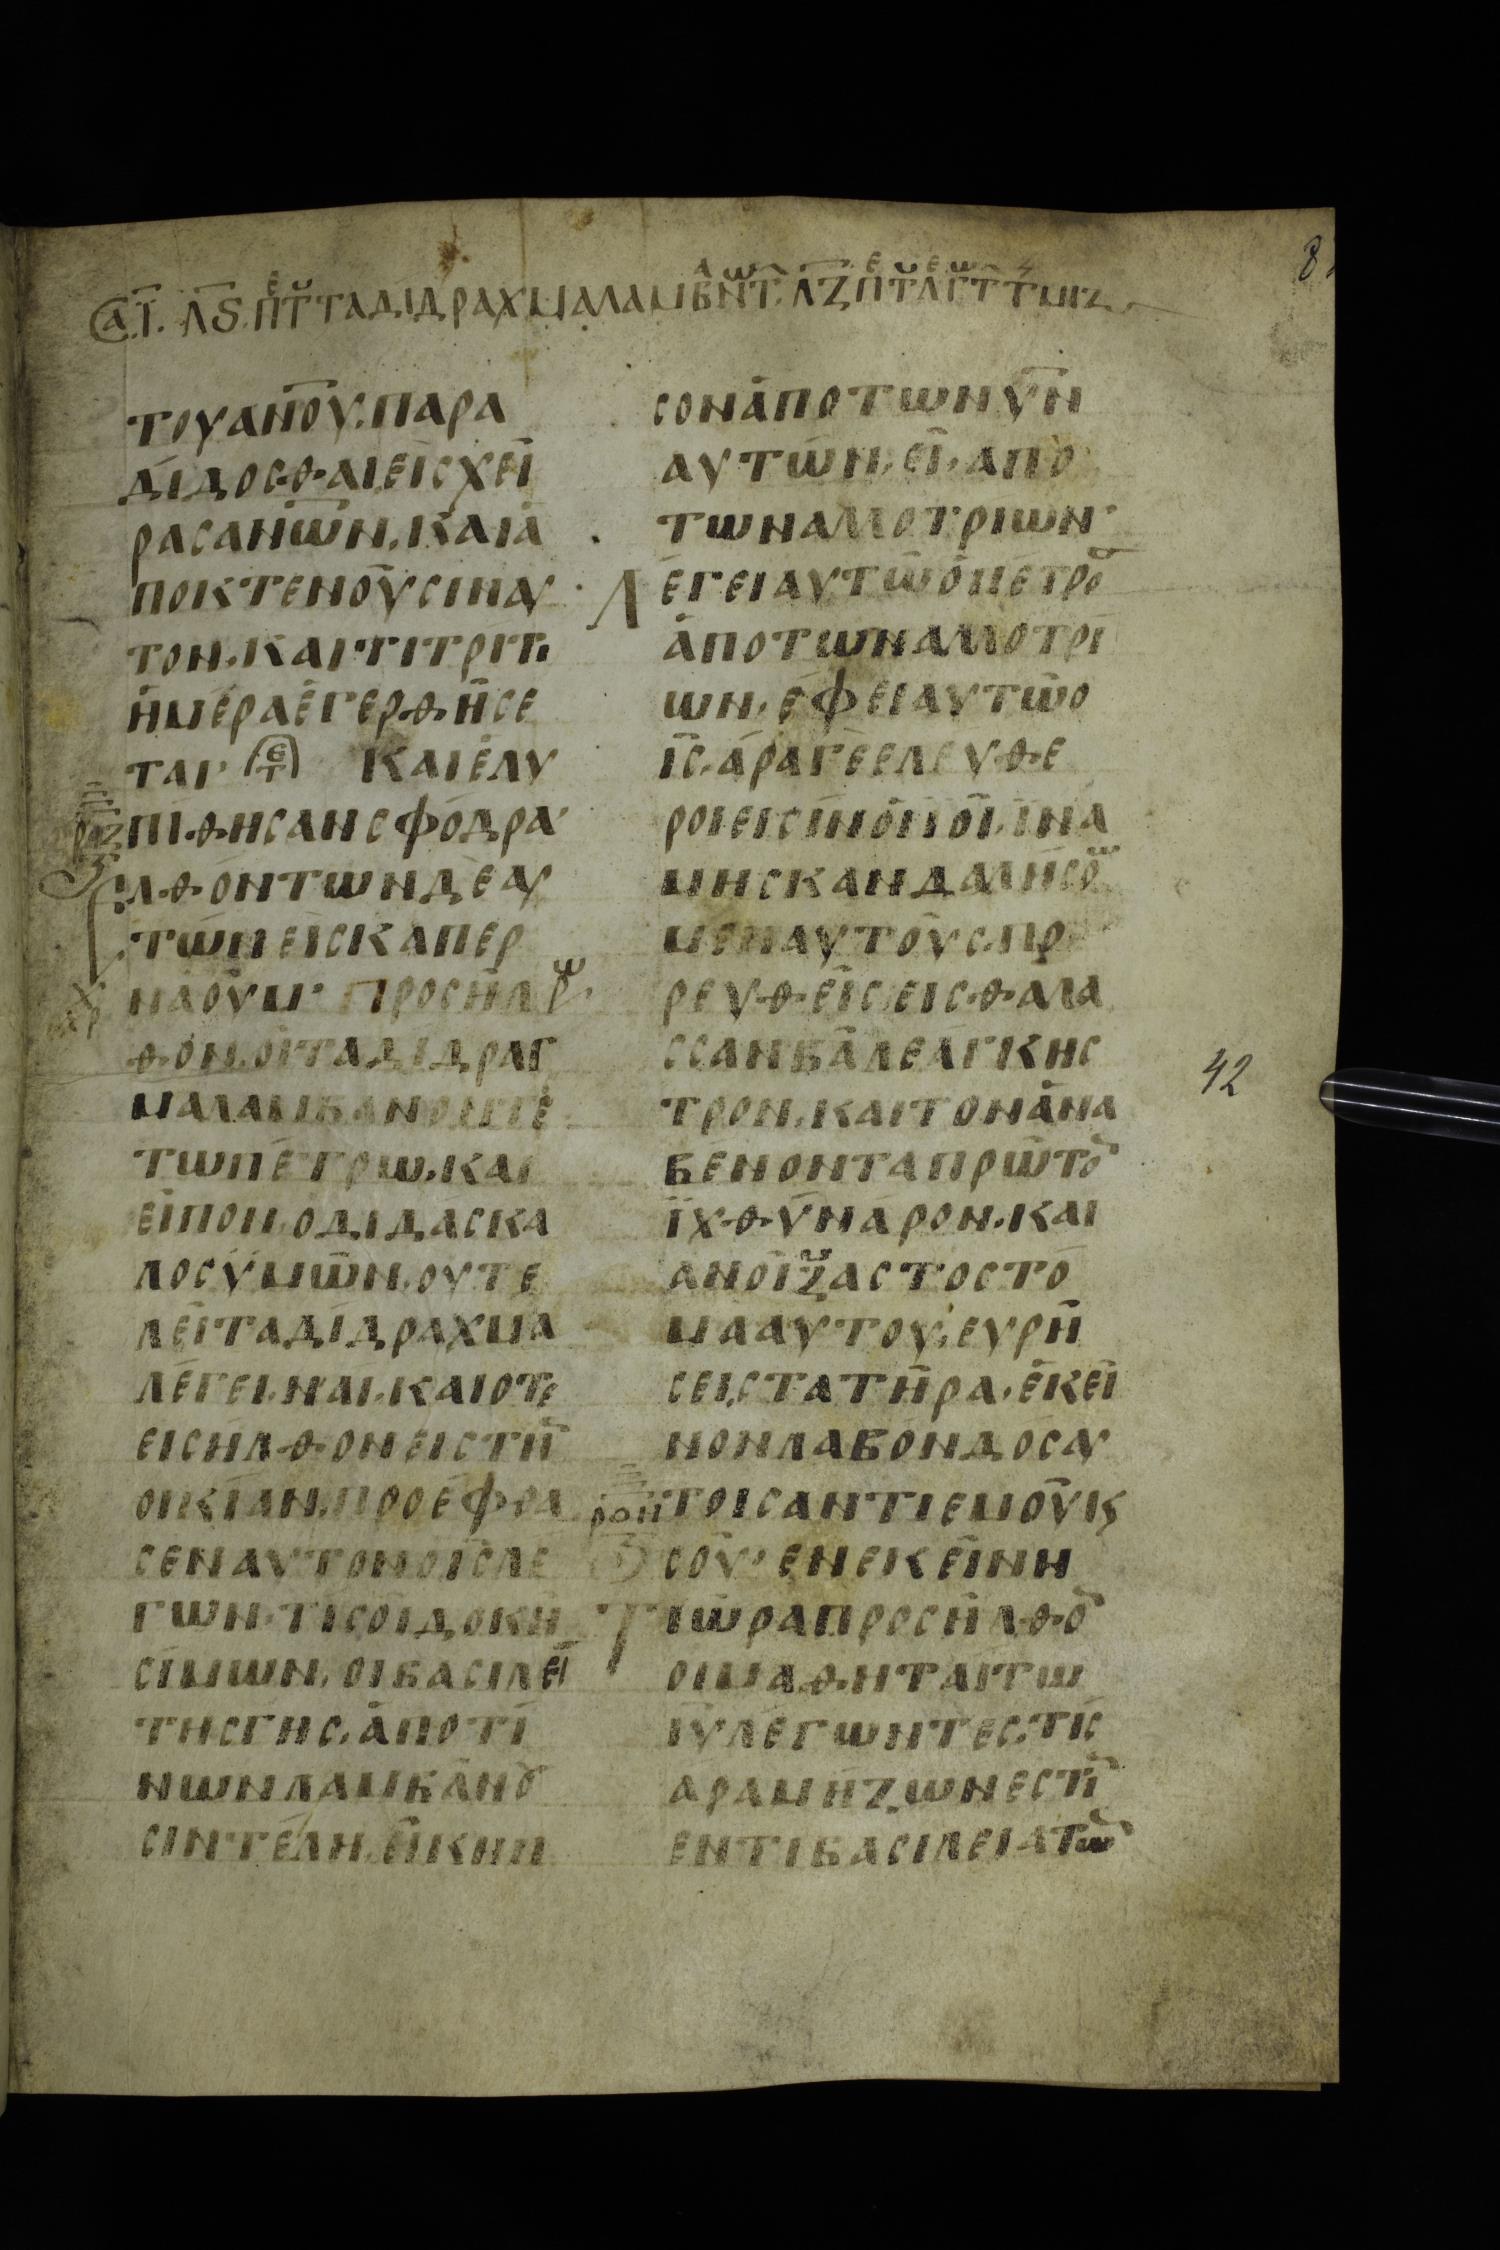 ΤΟΥ ΑΝΟΥ. ΠΑΡΑ
ΔΙΔΟСΘΑΙ ΕΙС ΧΕΙ
ΡΑС ΑΝΩΝ. ΚΑΙ Α
ΠΟΚΤΕΝΟΥСΙΝ ΑΥ
ΤΟΝ. ΚΑΙ ΤΙ ΤΡΙΤΙ
ΗΜΕΡΑ ΕΓΕΡΘΗСΕ
ΤΑΙ· ΚΑΙ ΕΛΥ
ΠΙΘΗСΑΝ СΦΟΔΡΑ·
ΛΘΟΝΤΩΝ ΔΕ ΑΥ
ΤΩΝ ΕΙС ΚΑΠΕΡ
ΝΑΟΥΜ· ΠΡΟСΗΛ
ΘΟΝ. ΟΙ ΤΑ ΔΙΔΡΑΓ
ΜΑ ΛΑΜΒΑΝΟΝΤΕ
ΤΩ ΠΕΤΡΩ. ΚΑΙ
ΕΙΠΟΝ. Ο ΔΙΔΑСΚΑ
ΛΟС ΥΜΩΝ. ΟΥ ΤΕ
ΛΕΙ ΤΑ ΔΙΔΡΑΧΜΑ
ΛΕΓΕΙ. ΝΑΙ. ΚΑΙ ΟΤΕ
ΕΙСΗΛΘΟΝ ΕΙС ΤΗ
ΟΙΚΙΑΝ. ΠΡΟΕΦΘΑ
СΕΝ ΑΥΤΟΝ Ο ΙС ΛΕ
ΓΩΝ· ΤΙ СΟΙ ΔΟΚΗ
СΙΜΩΝ. ΟΙ ΒΑСΙΛΕΙ
ΤΗС ΓΗС. ΑΠΟ ΤΙ
ΝΩΝ ΛΑΜΒΑΝΟΥ
СΙΝ ΤΕΛΗ. ΕΙ ΚΗΝ
СΟΝ ΑΠΟ ΤΩΝ ΥΝ
ΑΥΤΩΝ. ΕΙ. ΑΠΟ
ΤΩΝ ΑΛΛΟΤΡΙΩΝ·
ΛΕΓΕΙ ΑΥΤΩ Ο ΠΕΤΡΟ
ΑΠΟ ΤΩΝ ΑΛΛΟΤΡΙ
ΩΝ. ΕΦΕΙ ΑΥΤΩ Ο
ΙС. ΑΡΑΓΕ ΕΛΕΥΘΕ
ΡΟΙ ΕΙСΙΝ ΟΙ ΥΟΙ. ΙΝΑ
ΜΗ СΚΑΝΔΑΛΗСΟ
ΜΕΝ ΑΥΤΟΥС. ΠΟ
ΡΕΥΘΕΙС ΕΙС ΘΑΛΑ
ССΑΝ ΒΑΛΕ ΑΓΚΗС
ΤΡΟΝ. ΚΑΙ ΤΟΝ ΑΝΑ
ΒΕΝΟΝΤΑ ΠΡΩΤΟ
ΙΧΘΥΝ ΑΡΟΝ. ΚΑΙ
ΑΝΟΙΖΑС ΤΟ СΤΟ
ΜΑ ΑΥΤΟΥ. ΕΥΡΗ
СΕΙС ΤΑΤΗΡΑ. ΕΚΕΙ
ΝΟΝ ΛΑΒΟΝ ΔΟС ΑΥ
ΤΟΙС ΑΝΤΙ ΕΜΟΥ Κ
СΟΥ· ΕΝ ΕΚΕΙΝΗ
ΤΙ ΩΡΑ ΠΡΟСΗΛΘΟ
ΟΙ ΜΑΘΗΤΑΙ ΤΩ
ΙΥ ΛΕΓΩΝΤΕС. ΤΙС
ΑΡΑ ΜΗΖΩΝ ΕСΤΙ
ΕΝ ΤΙ ΒΑСΙΛΕΙΑ ΤΩ
42